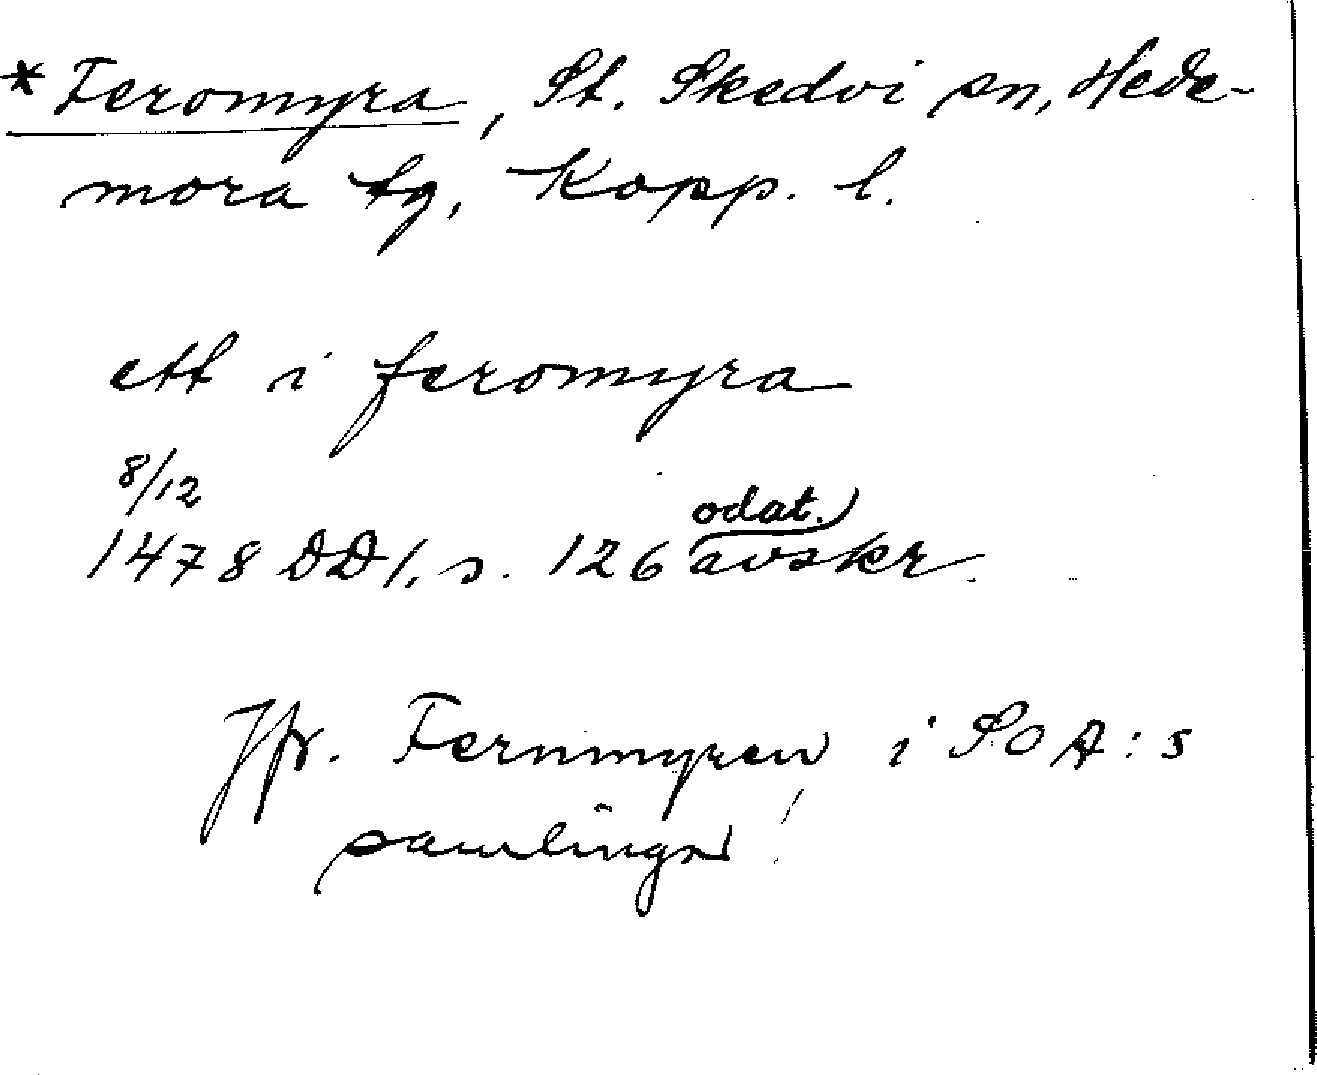 *Feromyra, St. Skedvi sn, Hede-
mora tg, Kopp. l.
ett i feromyra
8/12
odat.
1478 DD 1, s. 126 avskr.
Jfr. Fernmyren i SOA:s
samlingar!